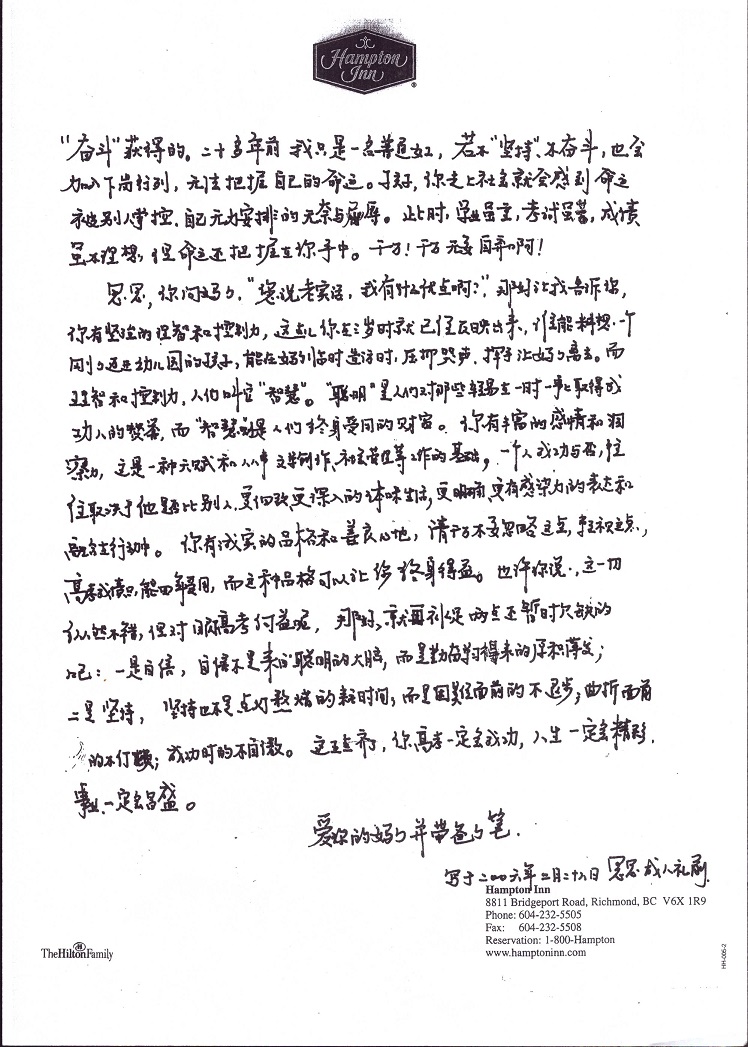 Hampton
Inn
"奋斗"获得的。二十多年前我只是一名普通女工，若不"坚持"、不奋斗，也会
加入下岗行列，无法把握自己的命运。孩子，你走上社会就会感到命运
被别人掌控，自己无力安排的无奈与屈辱。此时，学业虽重，考试虽篱，成绩
虽不理想，但命运还把握在你手中。千万！千万无妄自弃啊！
思思，你问妈妈，"您说老实话，我有什么优点啊？"，那好让我告诉你，
你有坚强的理智和控制力，这点儿你在三岁时就已经反映出来，谁能料想一个
刚刚迈进幼儿园的孩子，能在妈妈临时造访时，压抑哭声，挥手让妈妈离去。而
理智和控制力，人们叫它"智慧"。"聪明"是人们对那些轻易在一时一事上取得成
功人的赞誉，而"智慧"则是人们终身受用的财富。你有丰富的感情和洞
察力，这是一种天赋和从事文学创作、社会管理等工作的基础，一个人成功与否，往
往取决于他能比别人更细致更深入的体味生活，更明确更有感染力的表达和
融会在行动中。你有诚实的品格和善良心地，请千万不要忽略这点，
高考成绩只能四年受用，而这种品格可以让你终身得益。也许你说，这一切
纵然不错，但对眼前高考何益呢，那好，就再补促两点还暂时欠缺的
吧：一是自信，自信不是来自聪明的大脑，而是勤奋学习得来的厚积薄发；
二是坚持，坚持也不是点灯熬油的耗时间，而是困难面前的不退步；曲折面前
的不彷徨；成功时的不自傲。这五点齐了，你高考一定会成功，人生一定会精彩，
事业一定会昌盛。
爱你的妈妈并带爸爸笔．
写于二〇〇六年二月二十八日 思思成人礼前
Hampton Inn
8811 Bridgeport Road, Richmond, BC V6X 1R9
Phone: 604-232-5505
Fax: 604-232-5508
Reservation: 1-800-Hampton
www.hamptoninn.com
The Hilton Family
HH-005-2